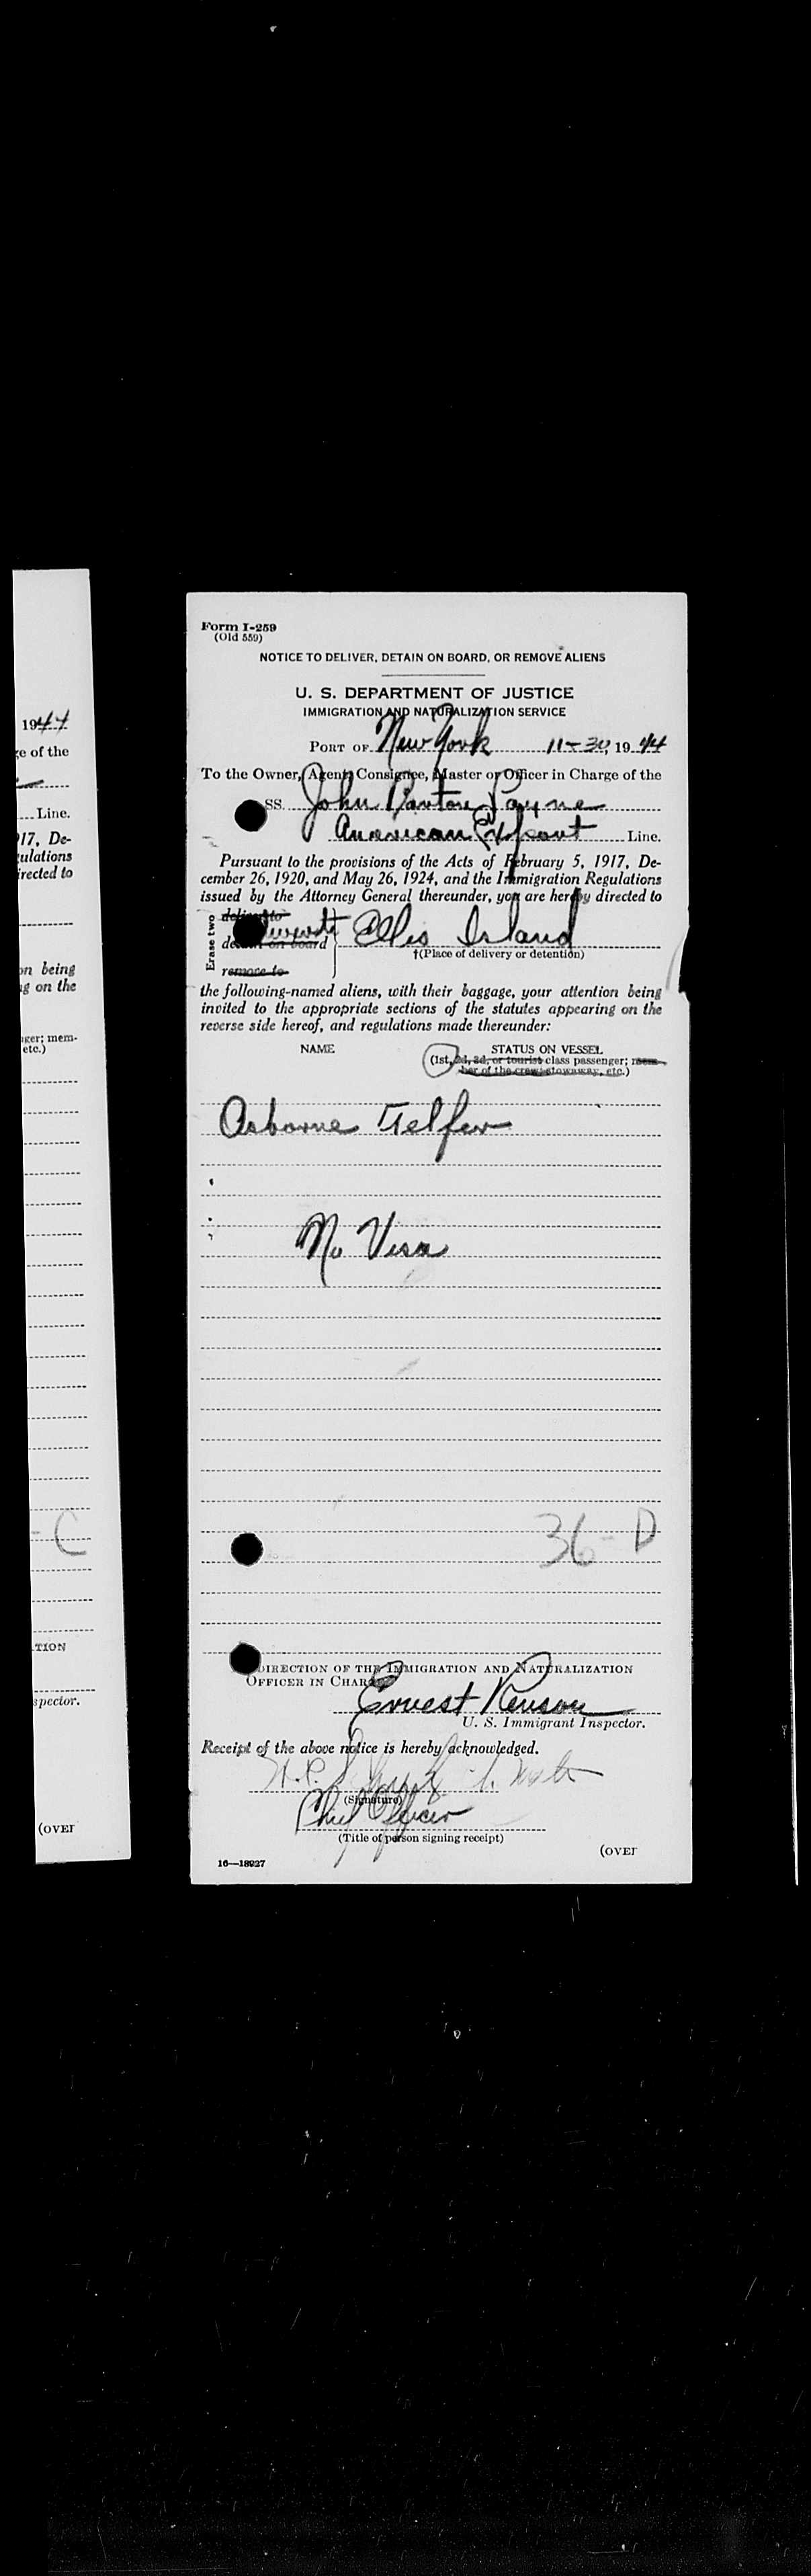 1944
ge of the
Line.
917, De-
gulations
irected to
on being
ng on the
ger; mem-
etc.)
- C
TION
spector.
(OVER
Form I-259
(Old 559)
NOTICE TO DELIVER, DETAIN ON BOARD, OR REMOVE ALIENS
U. S. DEPARTMENT OF JUSTICE
IMMIGRATION AND NATURALIZATION SERVICE
PORT OF New York 11-30, 1944
To the Owner, Agent, Consignee, Master or Officer in Charge of the
SS. John Barton Payne
American Export Line.
Pursuant to the provisions of the Acts of February 5, 1917, De-
cember 26, 1920, and May 26, 1924, and the Immigration Regulations
issued by the Attorney General thereunder, you are hereby directed to
Erase two
deliver to
detain on board Ellis Island
†(Place of delivery or detention)
remove to
the following-named aliens, with their baggage, your attention being
invited to the appropriate sections of the statutes appearing on the
reverse side hereof, and regulations made thereunder:
NAME STATUS ON VESSEL
(1st, 2d, 3d, or tourist class passenger; mem-
ber of the crew; stowaway, etc.)
Osborne Telfer
No Visa
36-D
DIRECTION OF THE IMMIGRATION AND NATURALIZATION
OFFICER IN CHARGE
Ernest Renson
U. S. Immigrant Inspector.
Receipt of the above notice is hereby acknowledged.
(Signature)
Chief Officer
(Title of person signing receipt)
16—18927 (OVER